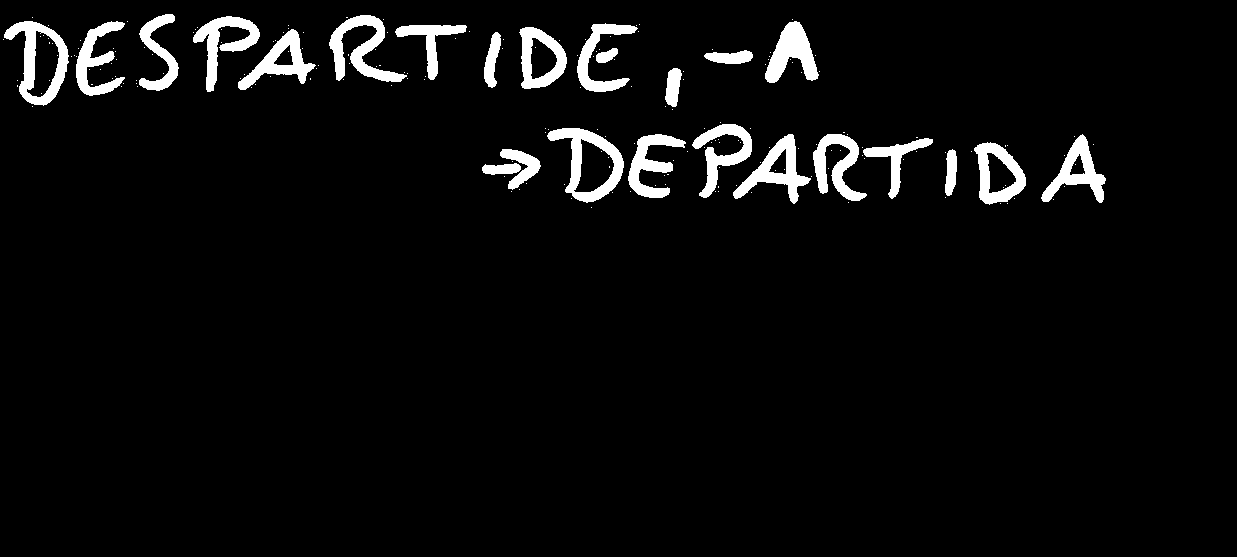 DESPARTIDE, -A
→DEPARTIDA